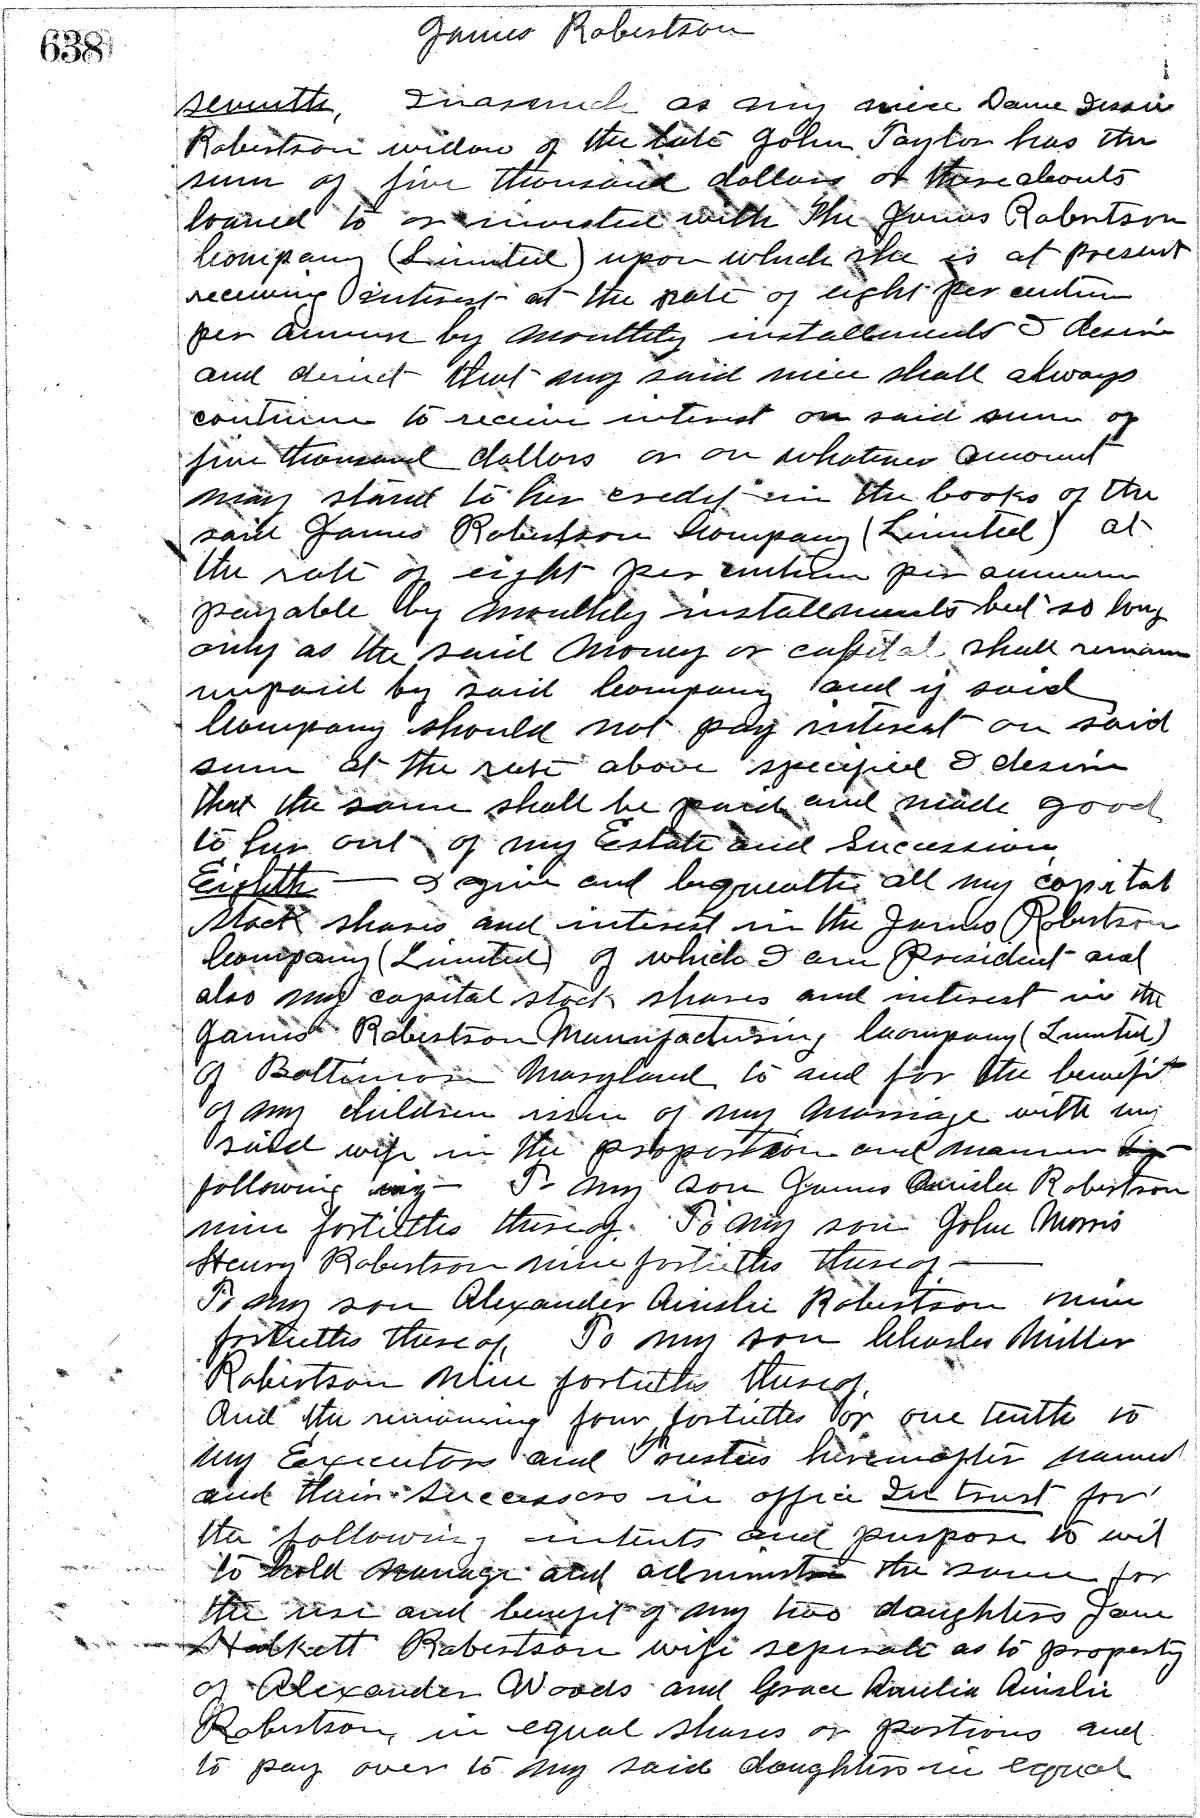 638
James Robertson
Seventh, Inasmuch as my niece Dame Jessie
Robertson widow of the late John Taylor has the
sum of five thousand dollars or thereabouts
loaned to or invested with The James Robertson
Company (Limited) upon which she is at present
receiving interest at the rate of eight per centum
per annum by monthly installments I desire
and direct that my said niece shall always
continue to receive interest on said sum of
five thousand dollars or on whatever amount
may stand to her credit in the books of the
said James Robertson Company (Limited) at
the rate of eight per centum per annum
payable by monthly installments but so long
only as the said money or capital shall remain
unpaid by said Company and if said
Company should not pay interest on said
sum at the rate above specified I desire
that the same shall be paid and made good
to her out of my Estate and Succession
Eighth — I give and bequeathe all my capital
stock shares and interest in the James Robertson
Company (Limited) of which I am President and
also my capital stock shares and interest in the
James Robertson Manufacturing Company (Limited)
of Baltimore Maryland to and for the benefit
of my children issue of my marriage with my
said wife in the proportion and manner
following viz— To my son James Ainslie Robertson
nine fortieths thereof. To my son John Morris
Henry Robertson nine fortieths thereof —
To my son Alexander Ainslie Robertson nine
fortieths thereof, To my son Charles Miller
Robertson nine fortieths thereof,
And the remaining four fortieths or one tenth to
my Executors and Trustees hereinafter named
and their Successors in office In trust for
the following intents and purpose to wit
to hold manage and administer the same for
the use and benefit of my two daughters Jane
Halkett Robertson wife seperate as to property
of Alexander Woods and Grace Amelia Ainslie
Robertson, in equal shares or portions and
to pay over to my said daughters in equal